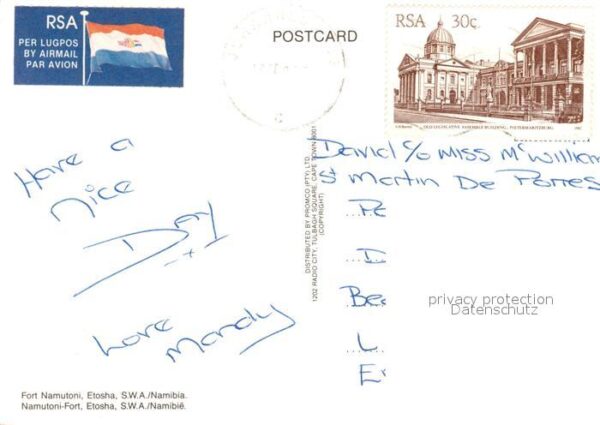 RSA
PER LUGPOS
BY AIRMAIL
PAR AVION
POSTCARD
RSA 30c.
OLD LEGISLATIVE ASSEMBLY BUILDING, PIETERMARITZBURG
1982
Have a
nice
Day
Love
Mandy
DISTRIBUTED BY PROMCO (PTY) LTD.
1202 RADIO CITY, TULBAGH SQUARE, CAPE TOWN 8001
(COPYRIGHT)
David c/o Miss McWilliam
St Martin De Porres
Pe
D
Bee
L
E
privacy protection
Datenschutz
Fort Namutoni, Etosha, S.W.A./Namibia.
Namutoni-Fort, Etosha, S.W.A./Namibië.